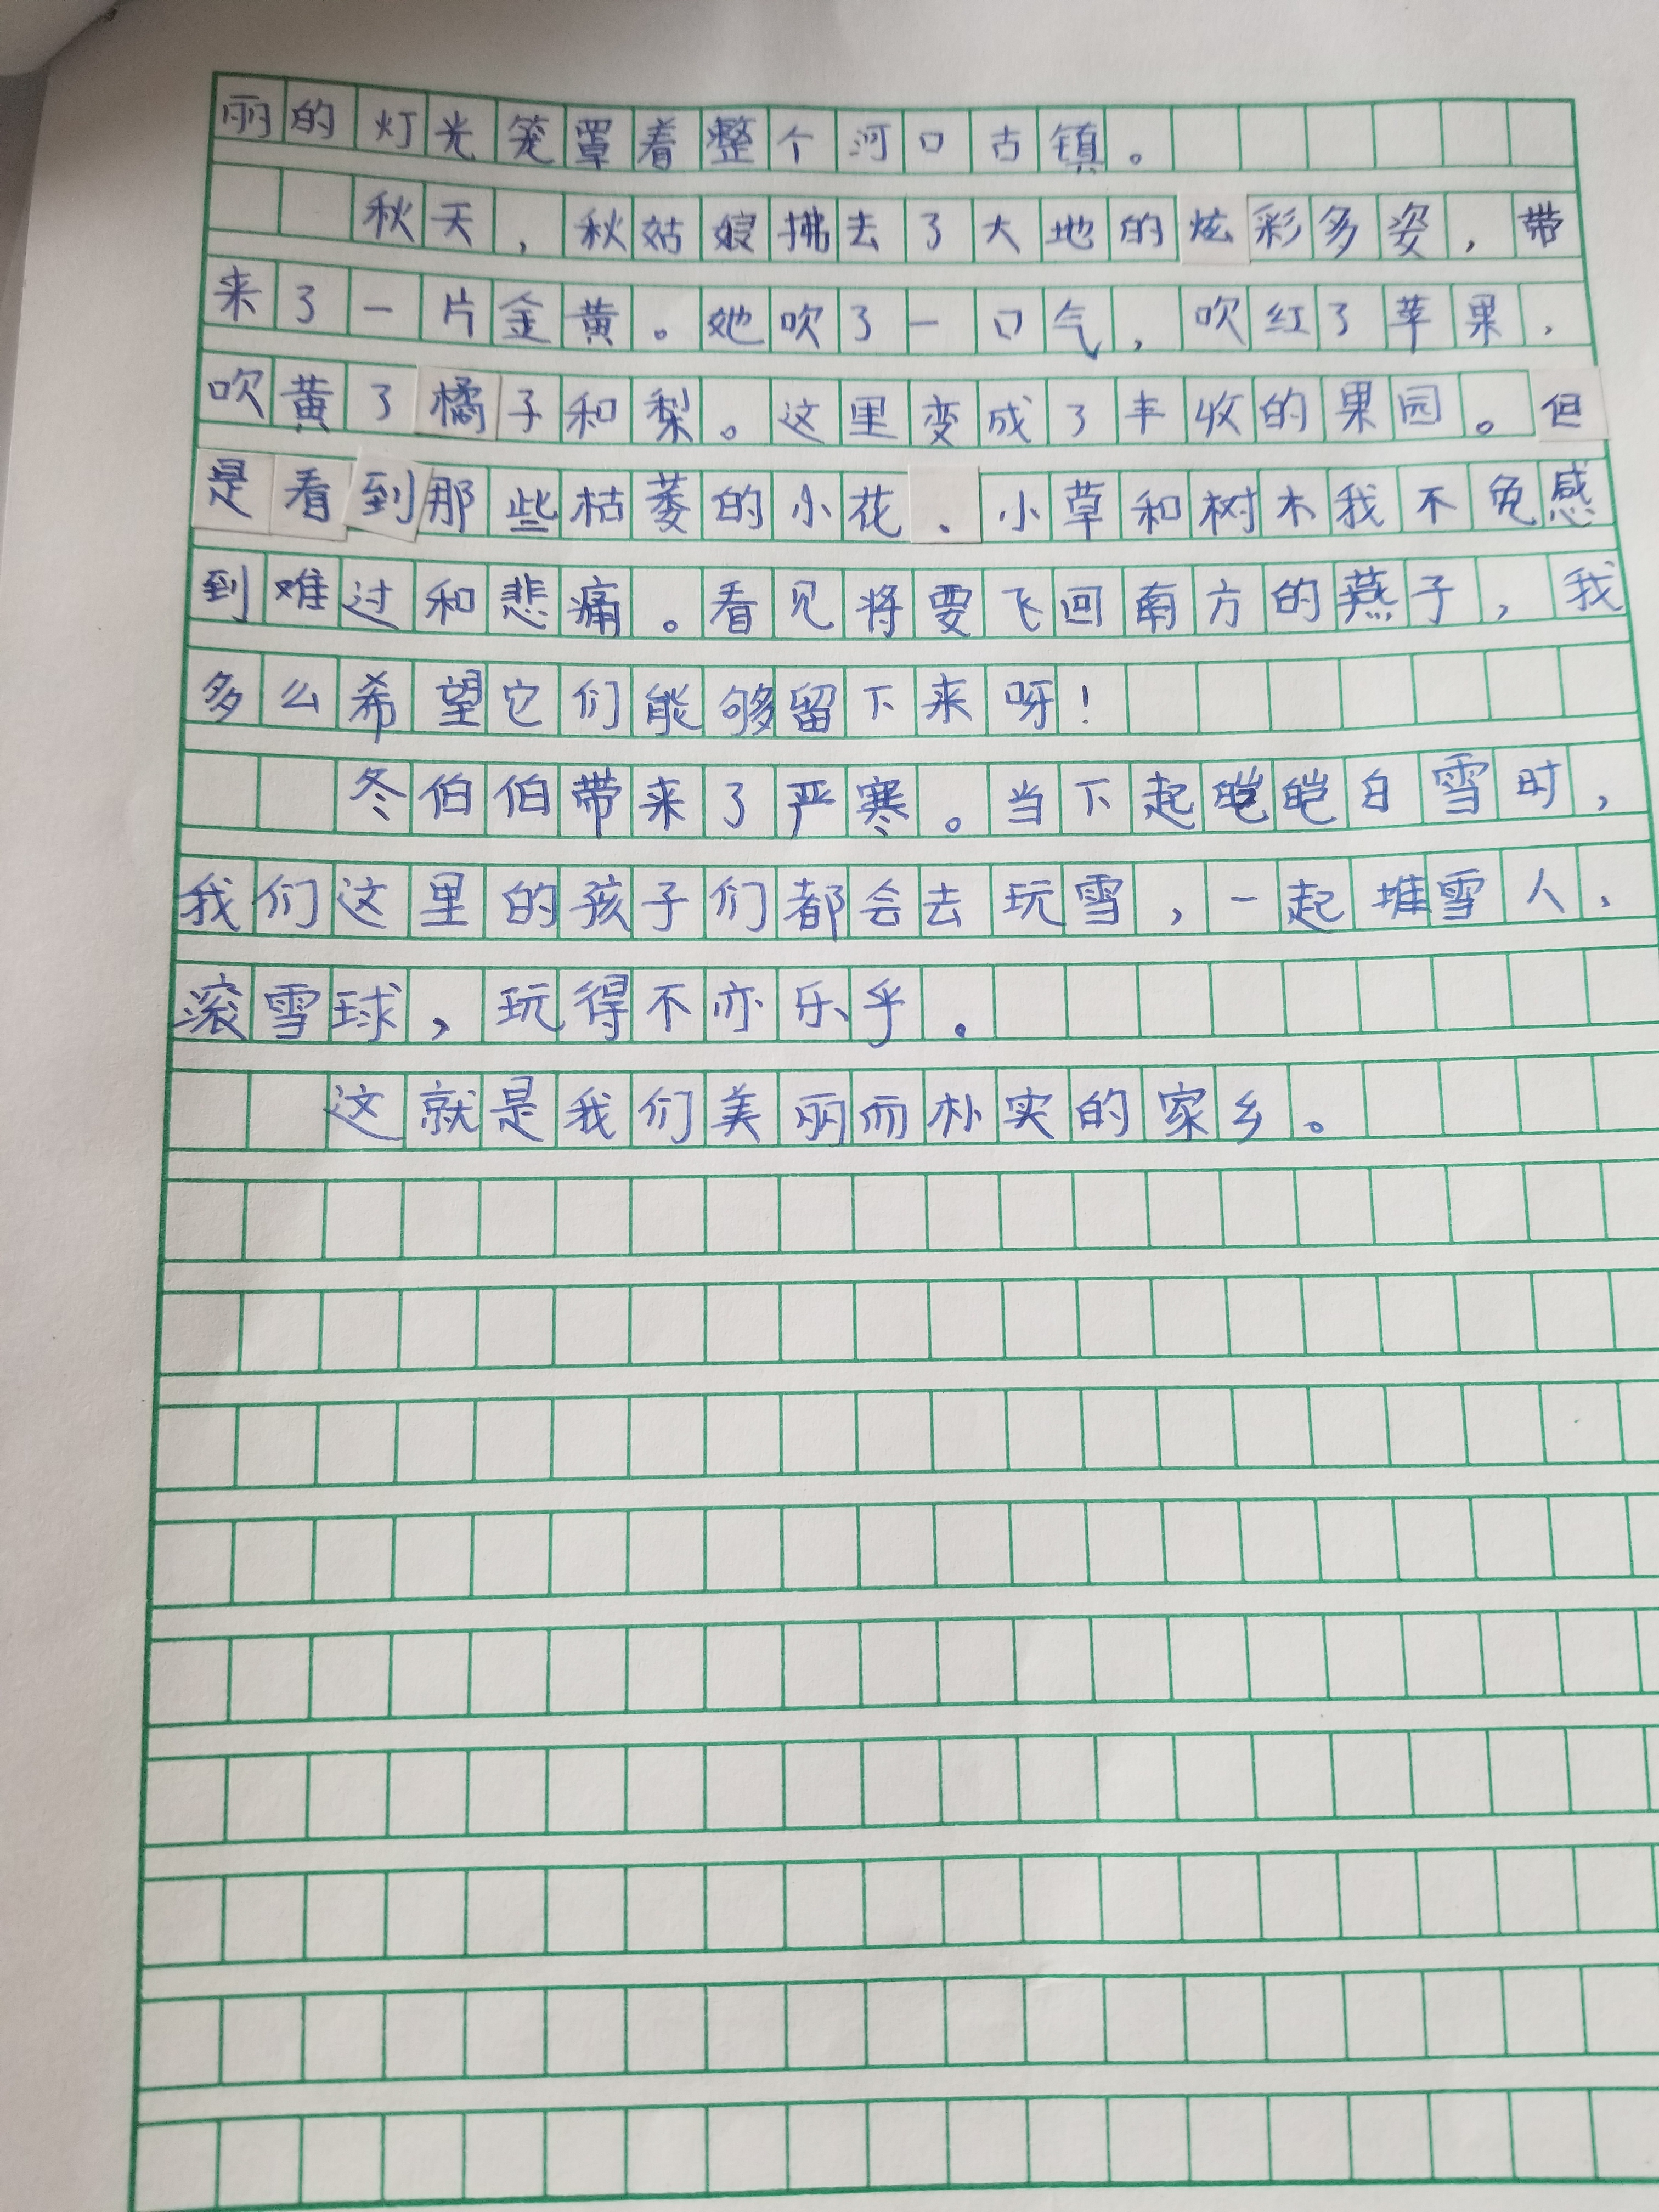 丽的灯光笼罩着整个河口古镇。
秋天，秋姑娘拂去了大地的炫彩多姿，带
来了一片金黄。她吹了一口气，吹红了苹果，
吹黄了橘子和梨。这里变成了丰收的果园。但
是看到那些枯萎的小花、小草和树木我不免感
到难过和悲痛。看见将要飞回南方的燕子，我
多么希望它们能够留下来呀！
冬伯伯带来了严寒。当下起皑皑白雪时，
我们这里的孩子们都会去玩雪，一起堆雪人、
滚雪球，玩得不亦乐乎。
这就是我们美丽而朴实的家乡。